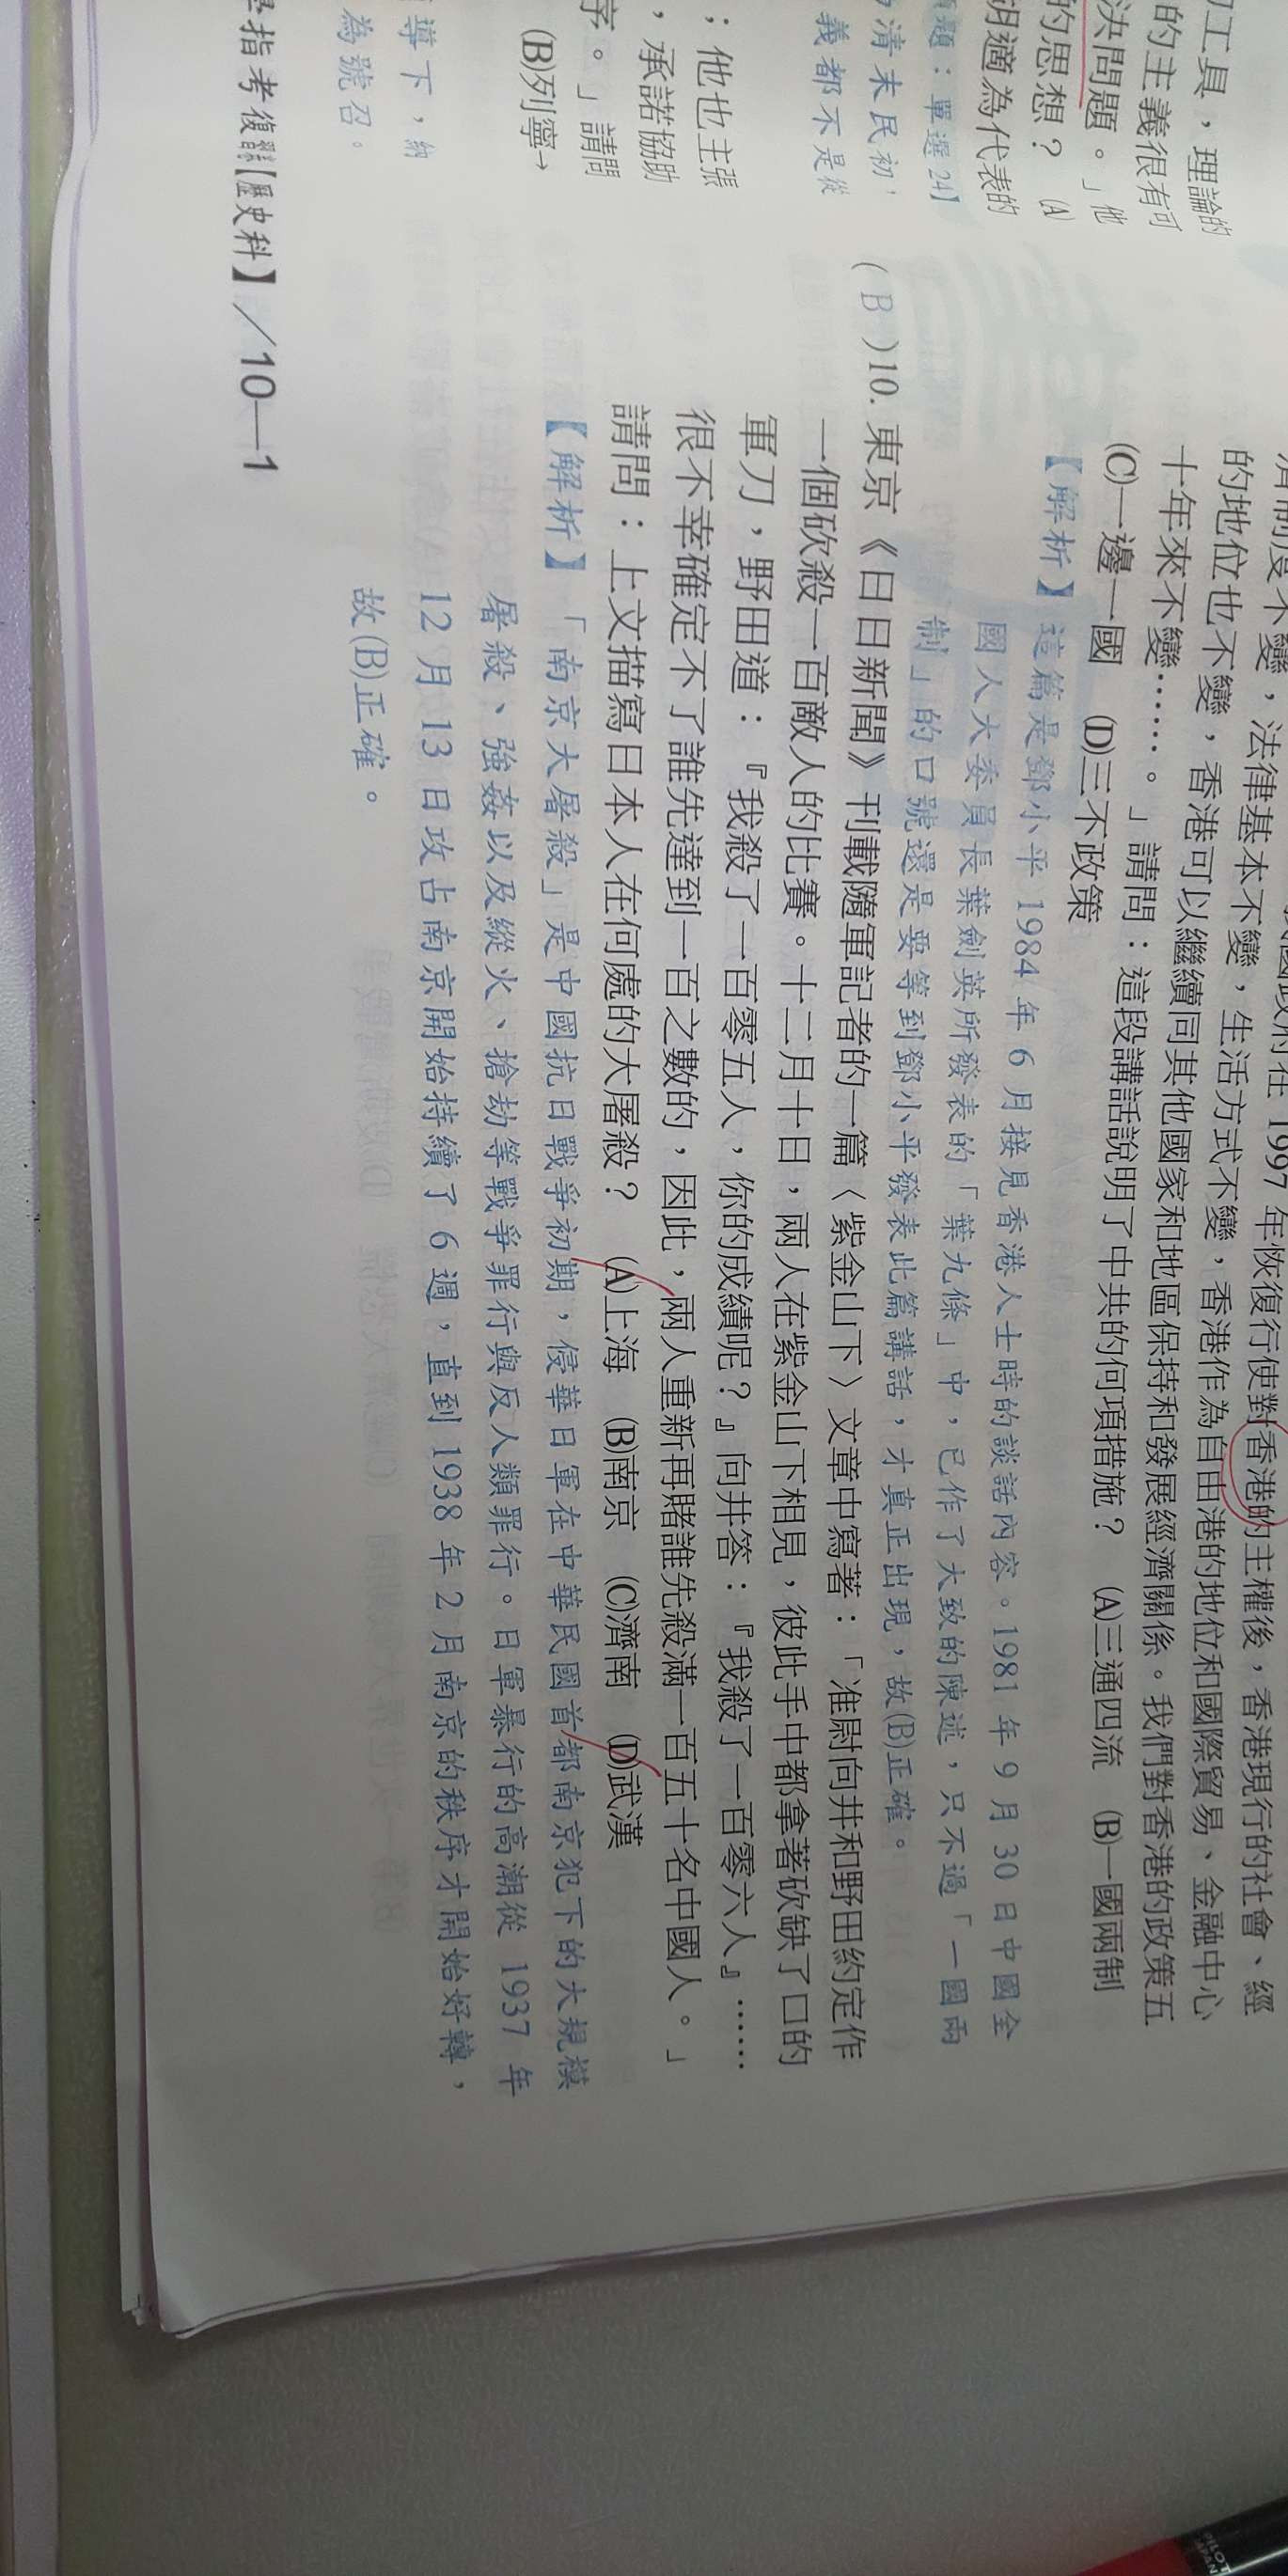 工具，理論的
的主義很有可
決問題。」他
的思想？ (A)
胡適為代表的
題：單選 24】
清末民初，
義都不是從
；他也主張
，承諾協助
序。」請問
(B)列寧→
導下，納
為號召。
指考複習【歷史科】／10—1
1997 年恢復行使對香港的主權後，香港現行的社會、經
濟制度不變，法律基本不變，生活方式不變，香港作為自由港的地位和國際貿易、金融中心
的地位也不變，香港可以繼續同其他國家和地區保持和發展經濟關係。我們對香港的政策五
十年來不變……。」請問：這段講話說明了中共的何項措施？ (A)三通四流 (B)一國兩制
(C)一邊一國 (D)三不政策
【解析】這篇是鄧小平 1984 年 6 月接見香港人士時的談話內容。1981 年 9 月 30 日中國全
國人大委員長葉劍英所發表的「葉九條」中，已作了大致的陳述，只不過「一國兩
制」的口號還是要等到鄧小平發表此篇講話，才真正出現，故(B)正確。
( B )10. 東京《日日新聞》刊載隨軍記者的一篇〈紫金山下〉文章中寫著：「准尉向井和野田約定作
一個砍殺一百敵人的比賽。十二月十日，兩人在紫金山下相見，彼此手中都拿著砍缺了口的
軍刀，野田道：『我殺了一百零五人，你的成績呢？』向井答：『我殺了一百零六人』……
很不幸確定不了誰先達到一百之數的，因此，兩人重新再賭誰先殺滿一百五十名中國人。」
請問：上文描寫日本人在何處的大屠殺？ (A)上海 (B)南京 (C)濟南 (D)武漢
【解析】「南京大屠殺」是中國抗日戰爭初期，侵華日軍在中華民國首都南京犯下的大規模
屠殺、強姦以及縱火、搶劫等戰爭罪行與反人類罪行。日軍暴行的高潮從 1937 年
12 月 13 日攻占南京開始持續了 6 週，直到 1938 年 2 月南京的秩序才開始好轉，
故(B)正確。
PILOT
JAPAN